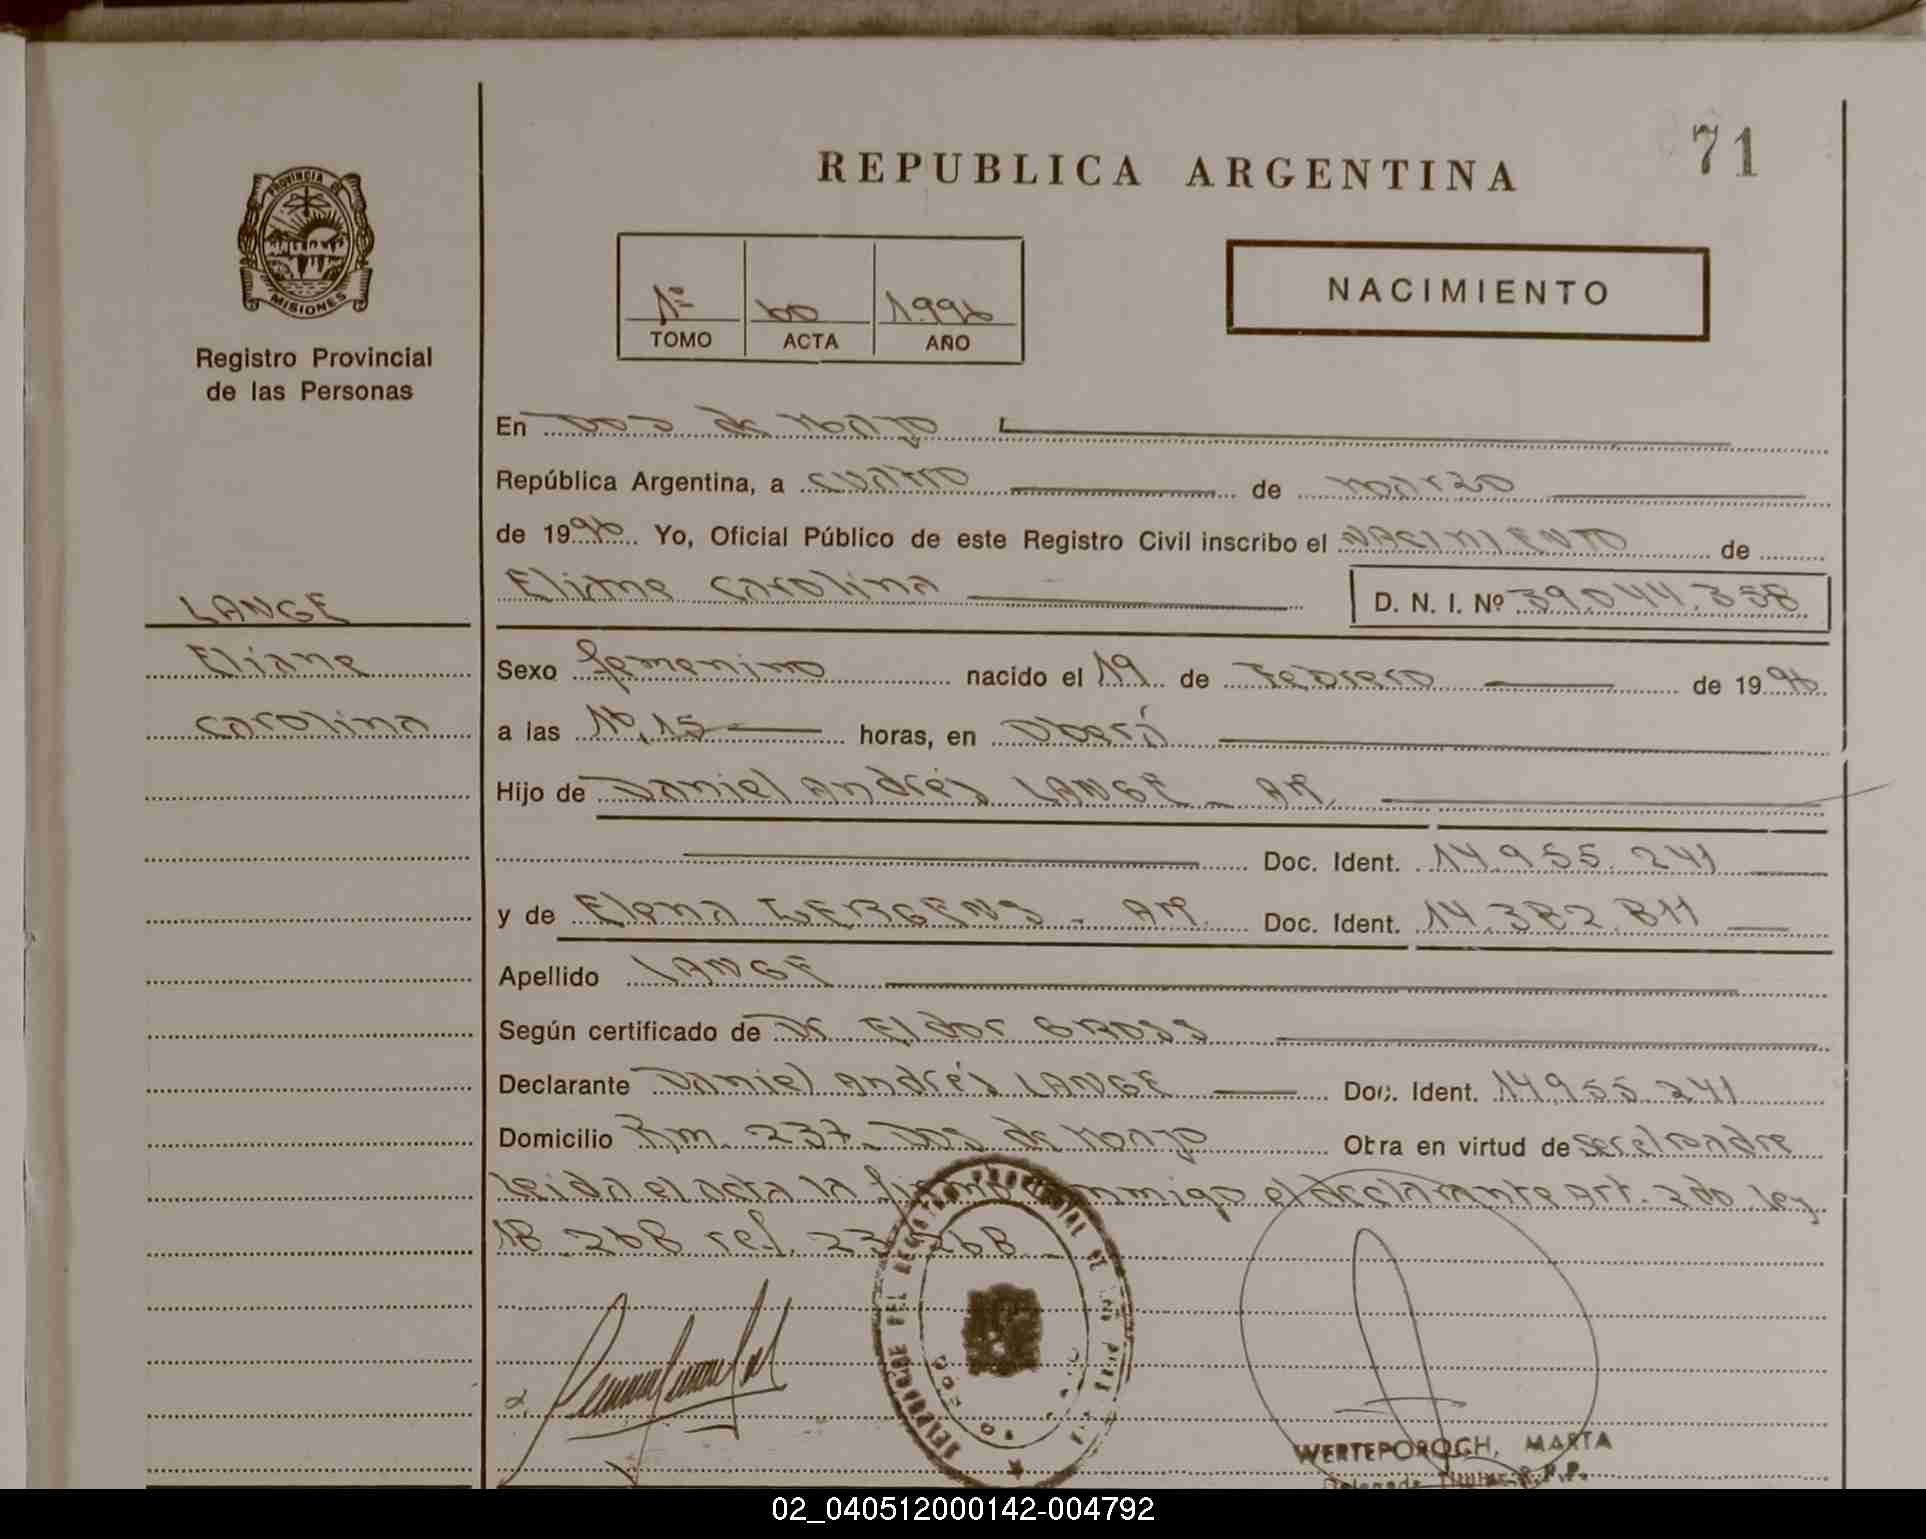 71
REPUBLICA ARGENTINA
PROVINCIA DE
MISIONES
Registro Provincial
de las Personas
1º 60 1.996
TOMO ACTA AÑO
NACIMIENTO
En Dos de Mayo
República Argentina, a cuatro de marzo
de 1996 Yo, Oficial Público de este Registro Civil inscribo el NACIMIENTO de
Eliane Carolina D. N. I. Nº 39.044.358
LANGE
Eliane
Carolina
Sexo femenino nacido el 19 de Febrero de 1996
a las 16,15 horas, en Oberá
Hijo de Daniel Andrés LANGE - AR.
Doc. Ident. 14.955.241
y de Elena - AR. Doc. Ident. 14.382.811
Apellido LANGE
Según certificado de Dr. Eldor GROSS
Declarante Daniel Andrés LANGE Doc. Ident. 14.955.241
Domicilio Km. 237 - Dos de Mayo Obra en virtud de ser el padre
Leida el acta la firma conmigo el declarante Art. 2do ley
18.268 ref. 23.268 -
WERTEPOROCH, MARTA
Delegada Titular R.P.P.
02_040512000142-004792